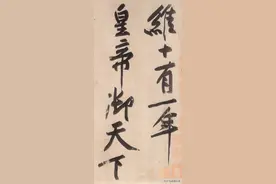 維十有一年
皇帝御天下